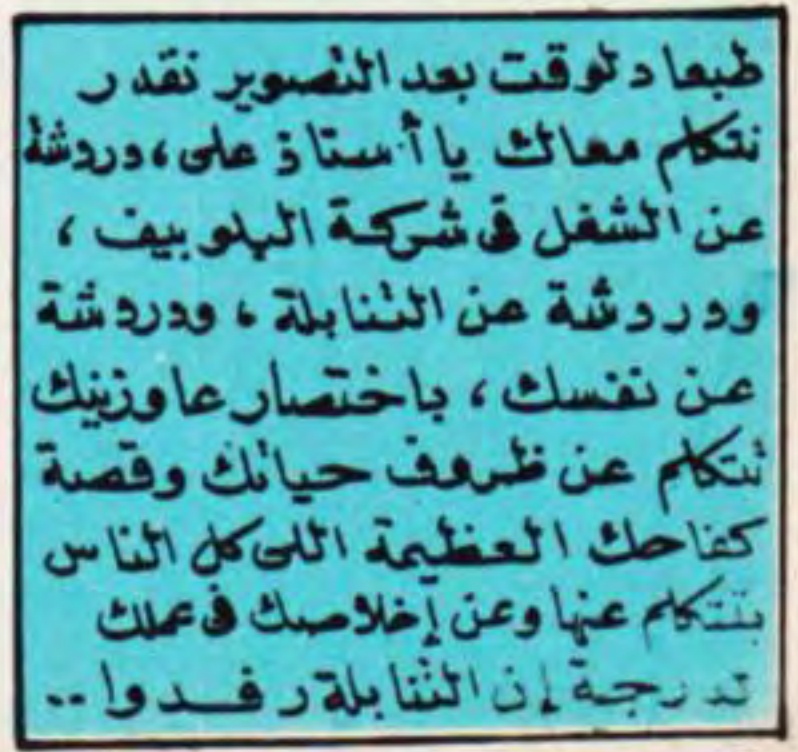 طبعا دلوقت بعد التصوير نقدر
نتكلم معاك يا أستاذ على، دردشة
عن الشغل فى شركة البلوبيف،
ودردشة عن التنابلة، ودردشة
عن نفسك، باختصار عاوزينك
تتكلم عن ظروف حياتك وقصة
كفاحك العظيمة اللى كل الناس
بتتكلم عنها وعن إخلاصك فى عملك
لدرجة إن التنابلة رفدوا..